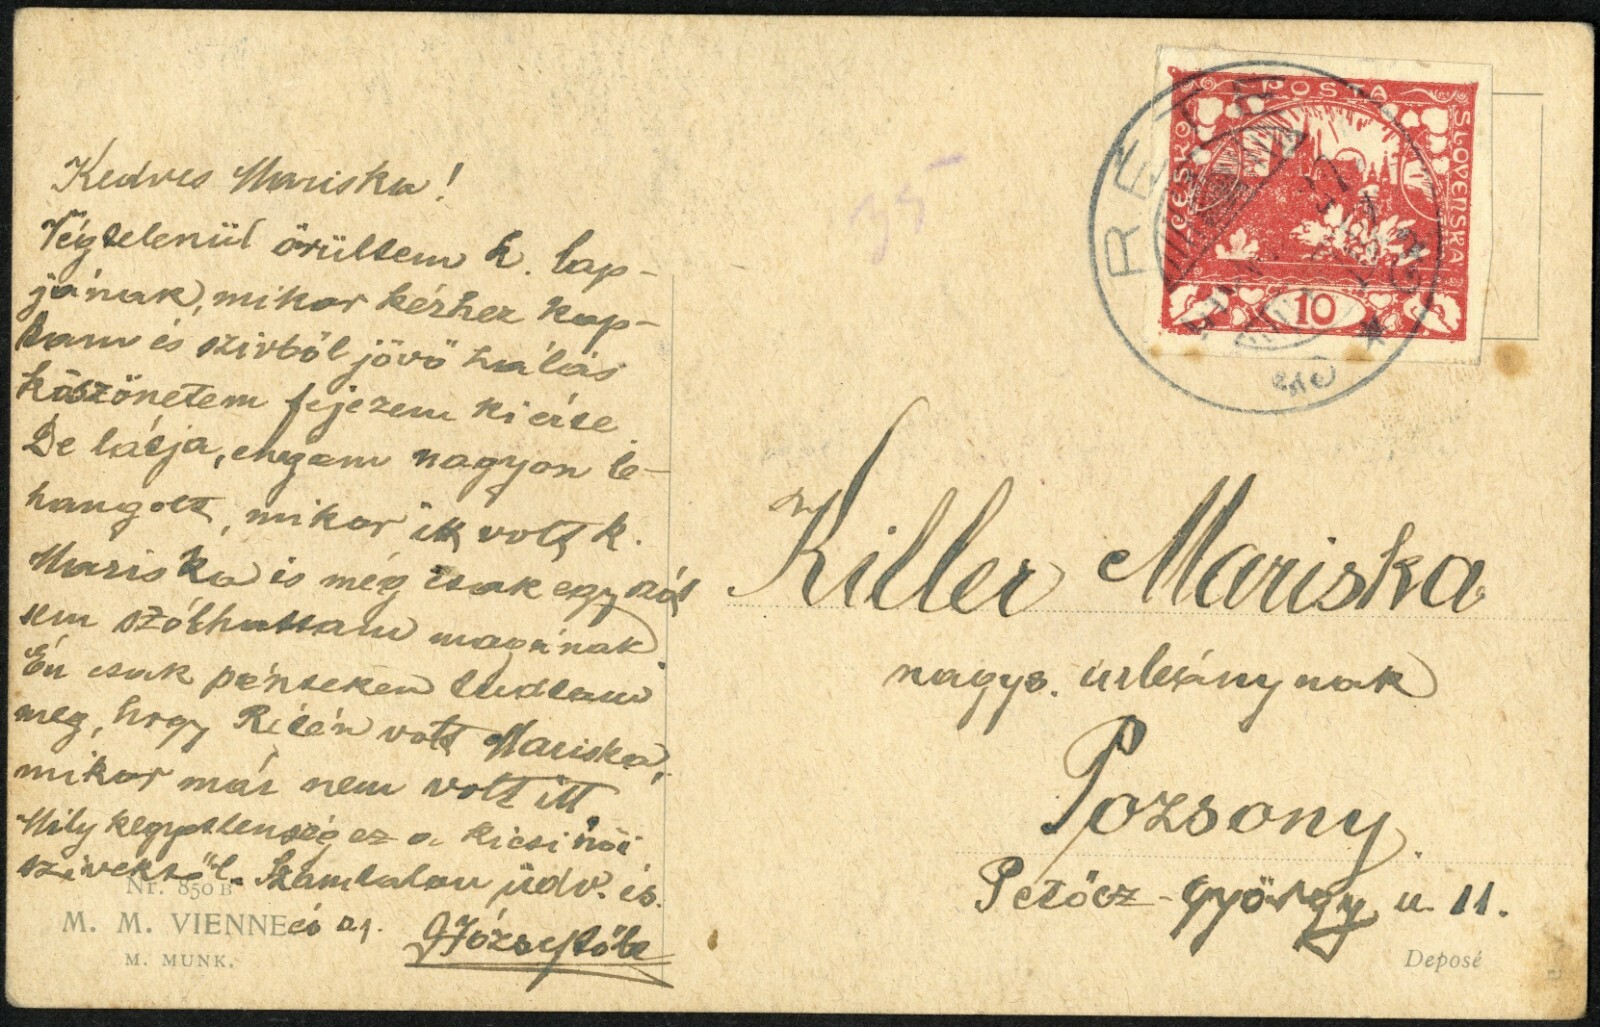 Kedves Mariska!
Végtelenül örültem k. lap-
jának, mikor kézhez kap-
tam és szivből jövő hálás
köszönetem fejezem ki érte.
De látja, engem nagyon le-
hangolt, mikor itt volt k.
Mariska és még csak egy szót
sem szólhattam magának.
Én csak pénteken tudtam
meg, hogy Rétén volt Mariska,
mikor már nem volt itt
Mily kegyetlenség ez a kicsi női
szivektől. Számtalan üdv. és.
Nr. 850 B
M. M. VIENNE
M. MUNK.
POSTA
ČESKO
SLOVENSKÁ
10
RÉTE
35
Killer Mariska
nagys. urleánynak
Pozsony
Petőcz-György u. 11.
Deposé